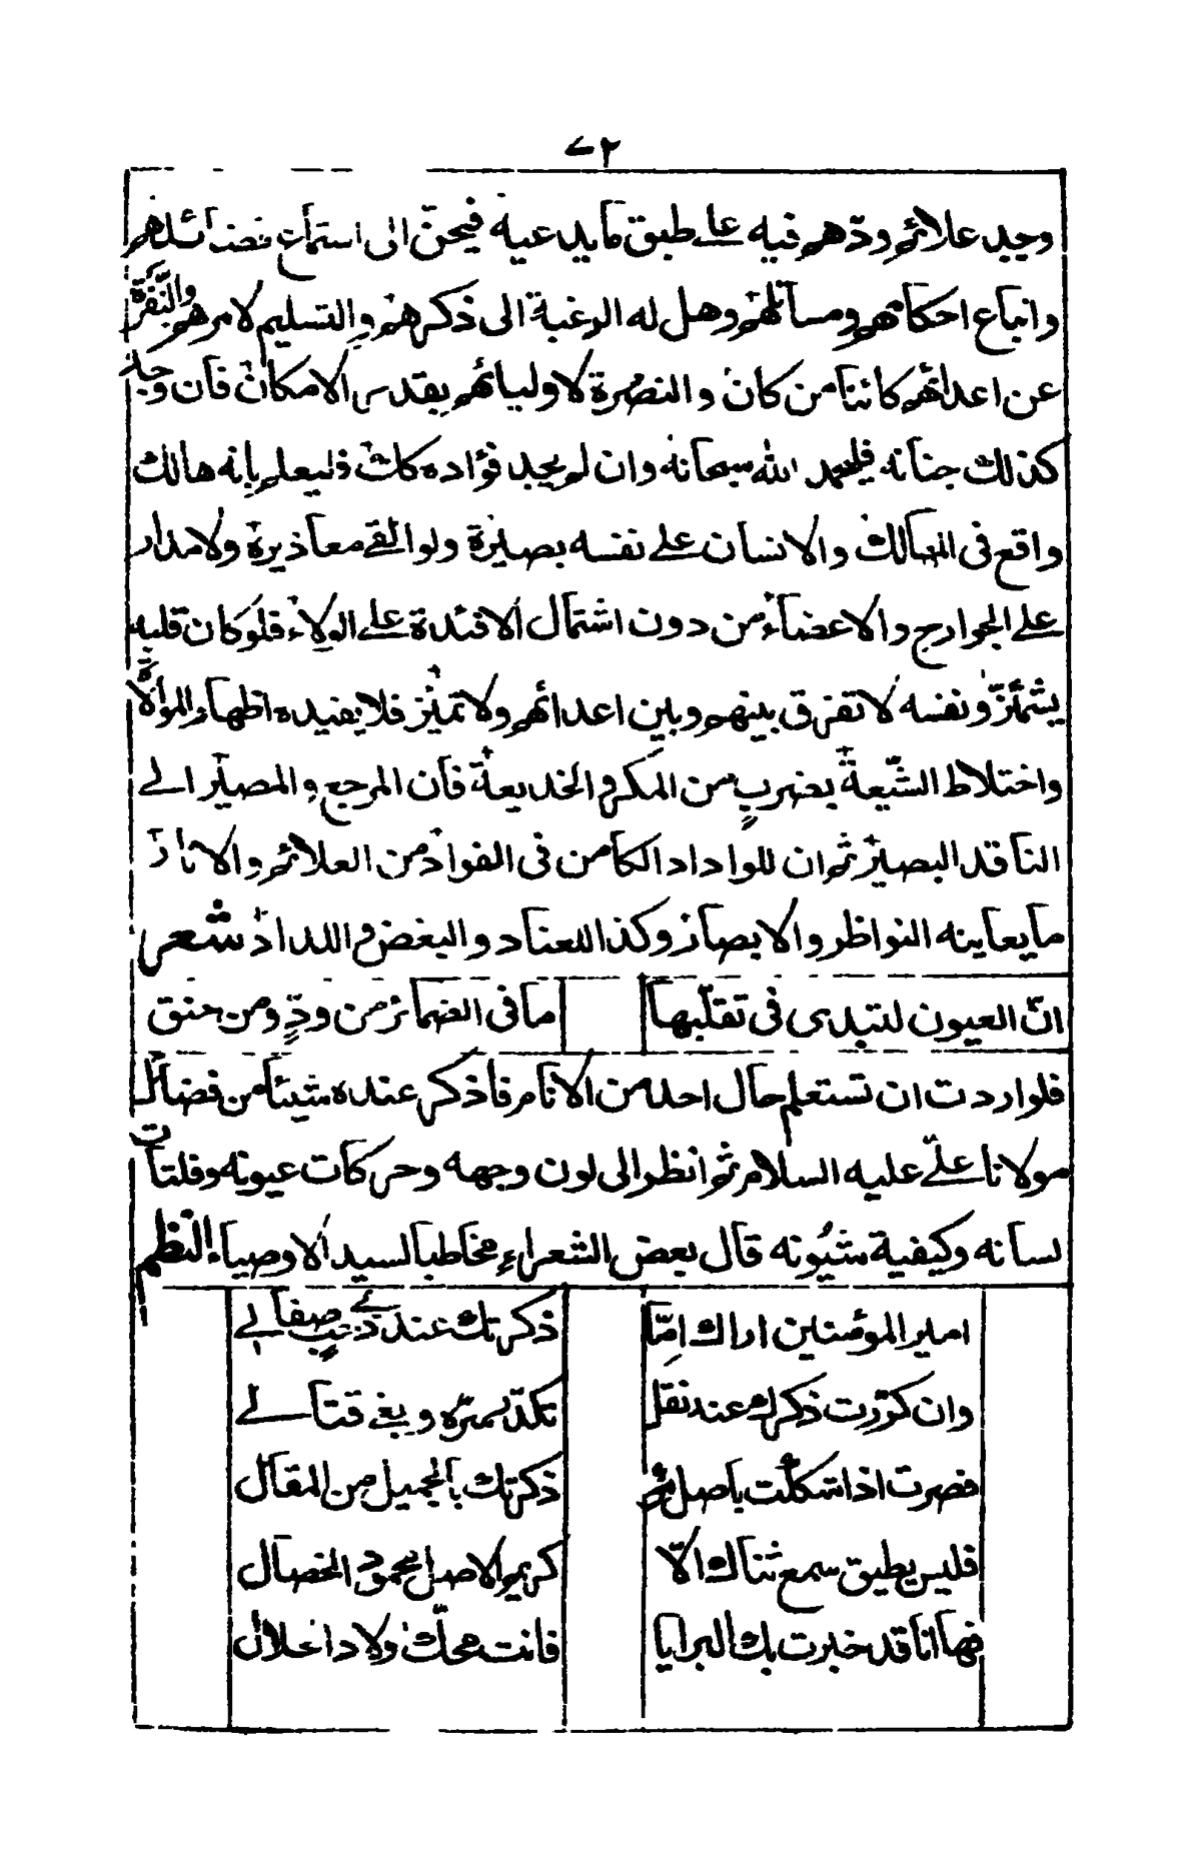 ٧٢
وجد علائم ودّهم فيه على طبق مايدعيه فيحنّ الى استماع فضائلهم
واتباع احكامهم ومسائلهم وهل له الرغبة الى ذكرهم والتسليم لامرهم والنّفرة
عن اعدائهم كائنا من كان والنصرة لاوليائهم بقدر الامكان فان وجد
كذلك جنانه فليحمد الله سبحانه وان لم يجد فؤاده كذلك فليعلم بانه هالك
واقع فى المهالك والانسان على نفسه بصيرة ولو القى معاذيره ولا مدار
على الجوارح والاعضاء من دون اشتمال الافئدة على الولاء فلو كان قلبه
يشمئزّ ونفسه لا تفرق بينهم وبين اعدائهم ولا تميّز فلا يفيده اظهار الموالاة
واختلاط الشّيعة بضربٍ من المكر والخديعة فان المرجع والمصير الى
الناقد البصير ثم ان للوداد الكامن فى الفواد من العلائم والاثار
ما يعاينه النواظر والابصار وكذا للعناد والبغض واللداد شعر
انّ العيون لتبدى فى تقلّبها ما فى الضمائر من ودٍّ ومن حنق
فلو اردت ان تستعلم حال احد من الانام فاذكر عنده شيئا من فضائل
مولانا علىّ عليه السلام ثم انظر الى لون وجهه وحركات عيونه وفلتات
لسانه وكيفية شيُونه قال بعض الشعراء مخاطبا لسيد الاوصياء النّظم
امير المؤمنين اراك امّا ذكرتك عند ذى نسبٍ صفا لى
وان كرّرت ذكرك عند نغل تكدّر سرّه وبغى قتالى
فصرت اذا شككت باصل مرء ذكرتك بالجميل من المقال
فليس يطيق سمع ثناك الّا كريم الاصل محمود الخصال
فها انا قد خبرت بك البرايا فانت محكّ اولاد الحلال